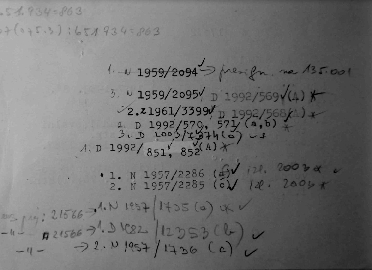 651.934=863
(75.3):651.934=863
1. N 1959/2094 → presign. na 135.001
3. N 1959/2095, D 1992/569 (A) *
2. 1961/3399 D 1992/568 (A) *
2. D 1992/570, 571/(a,b) *
3. D (a)
1. D 1992/851, 852 (A) *
1. N 1957/2286 (a) izl. 2003 *
2. N 1957/2285 (c) izl. 2003 *
21586 → 1. N 1957/1735 (a) *
-"- 21586 → 1. D 1982/12353 (b)
-"- → 2. N 1957/1736 (a)